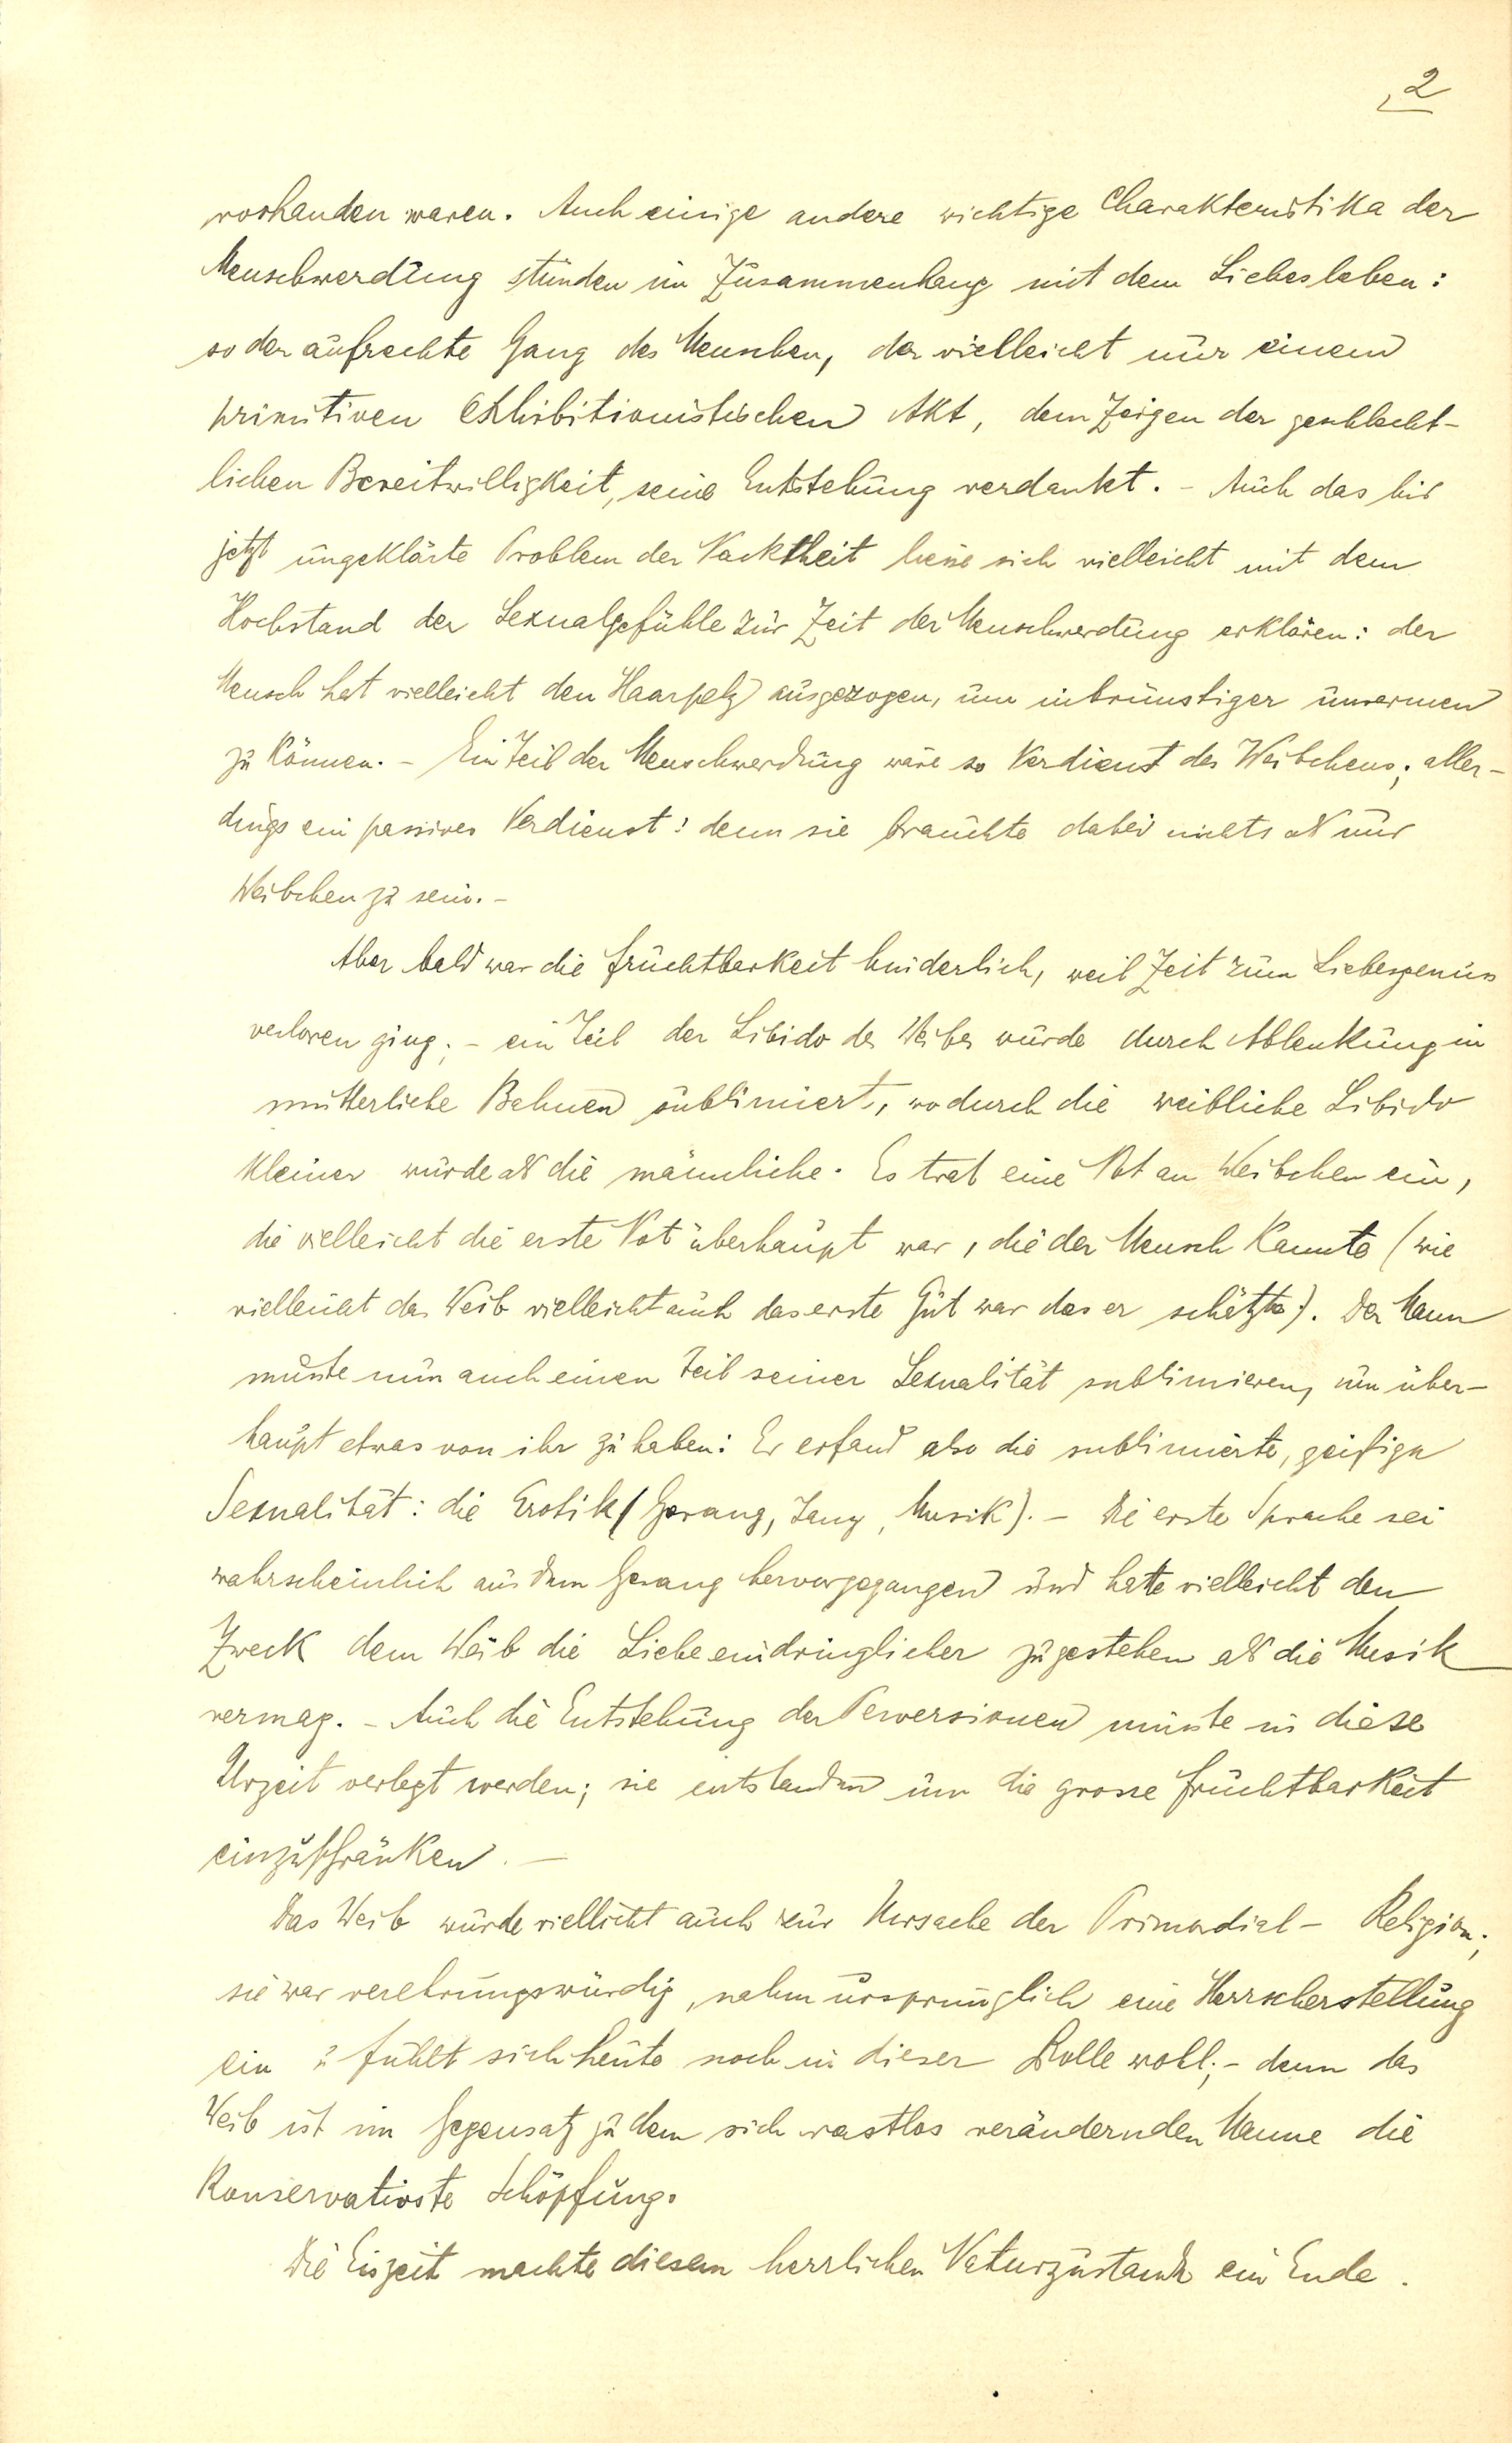 2
vorhanden waren. Auch einige andere wichtige Charakteristika der
Menschwerdung stünden im Zusammenhang mit dem Liebesleben:
so der aufrechte Gang des Menschen, der vielleicht nur einem
primitiven exhibitionistischen Akt, dem Zeigen der geschlecht-
lichen Bereitwilligkeit, seine Entstehung verdankt. - Auch das bis
jetzt ungeklärte Problem der Nacktheit liesse sich vielleicht mit dem
Hochstand der Sexualgefühle zur Zeit der Menschwerdung erklären: der
Mensch hat vielleicht den Haarpelz ausgezogen, um inbrünstiger umarmen
zu können. - Ein Teil der Menschwerdung wäre so Verdienst des Weibchens; aller-
dings ein passives Verdienst: denn sie brauchte dabei nichts als nur
Weibchen zu sein. -
Aber bald war die Fruchtbarkeit hinderlich, weil Zeit zum Liebesgenuss
verloren ging; - ein Teil der Libido des Weibes wurde durch Ablenkung in
mütterliche Bahnen sublimiert, wodurch die weibliche Libido
kleiner wurde als die männliche. Es trat eine Not an Weibchen ein,
die vielleicht die erste Not überhaupt war, die der Mensch kannte (wie
vielleicht das Weib vielleicht auch das erste Gut war das er schätzte). Der Mann
musste nun auch einen Teil seiner Sexualität sublimieren, um über-
haupt etwas von ihr zu haben: Er erfand also die sublimierte, geistige
Sexualität: die Erotik (Gesang, Tanz, Musik). - Die erste Sprache sei
wahrscheinlich aus dem Gesang hervorgegangen und hatte vielleicht den
Zweck dem Weib die Liebe eindringlicher zu gestehen als die Musik
vermag. - Auch die Entstehung der Perversionen müsste in diese
Urzeit verlegt werden; sie entstanden um die grosse Fruchtbarkeit
einzuschränken. -
Das Weib wurde viellicht auch zur Ursache der Primordial - Religion;
sie war verehrungswürdig, nahm ursprünglich eine Herrscherstellung
ein & fühlt sich heute noch in dieser Rolle wohl; - denn das
Weib ist im Gegensatz zu dem sich rastlos verändernden Manne die
konservativste Schöpfung.
Die Eiszeit machte diesem herrlichen Naturzustande ein Ende.